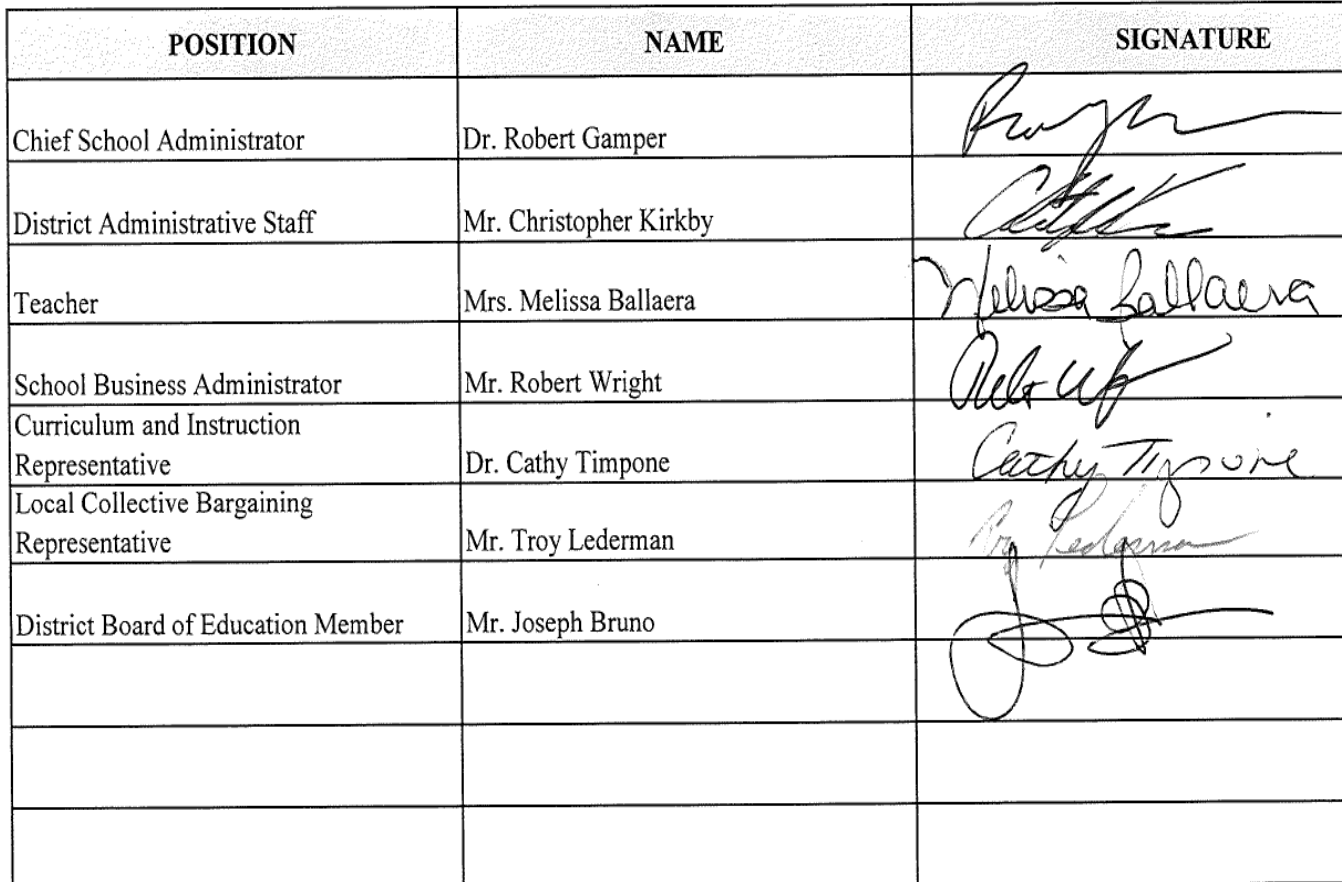 POSITION NAME SIGNATURE
Chief School Administrator Dr. Robert Gamper
District Administrative Staff Mr. Christopher Kirkby
Teacher Mrs. Melissa Ballaera Melissa Ballaera
School Business Administrator Mr. Robert Wright
Curriculum and Instruction
Representative Dr. Cathy Timpone Cathy Timpone
Local Collective Bargaining
Representative Mr. Troy Lederman Troy Lederman
District Board of Education Member Mr. Joseph Bruno